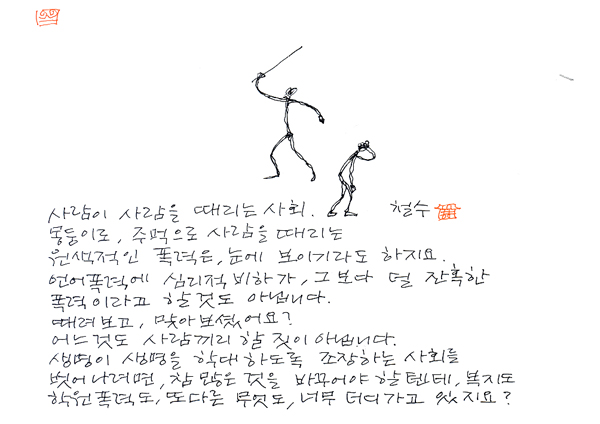 사람이 사람을 때리는 사회. 철수
몽둥이로, 주먹으로 사람을 때리는
원색적인 폭력은, 눈에 보이기라도 하지요.
언어폭력에 심리적 비하가, 그보다 덜 잔혹한
폭력이라고 할 것도 아닙니다.
때려보고, 맞아보셨어요?
어느것도 사람끼리 할 짓이 아닙니다.
생명이 생명을 학대하도록 조장하는 사회를
벗어나려면, 참 많은 것을 바꾸어야 할텐데, 복지도
학원폭력도, 또다른 무엇도, 너무 더디가고 있지요?